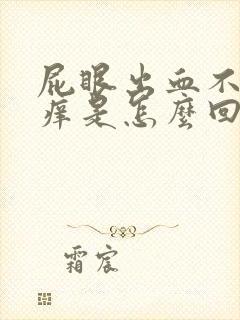 屁眼出血不
痒是怎麼回
霜宸